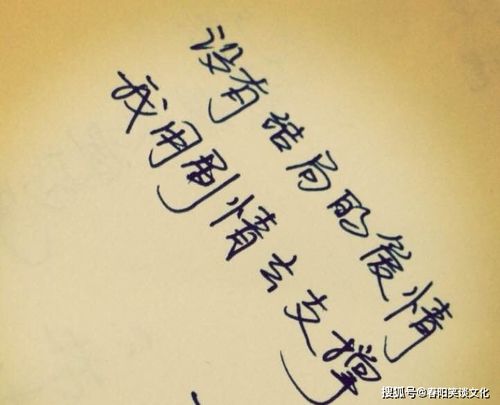 没有结局的爱情
我用剧情去支撑
搜狐号@春阳笑谈文化